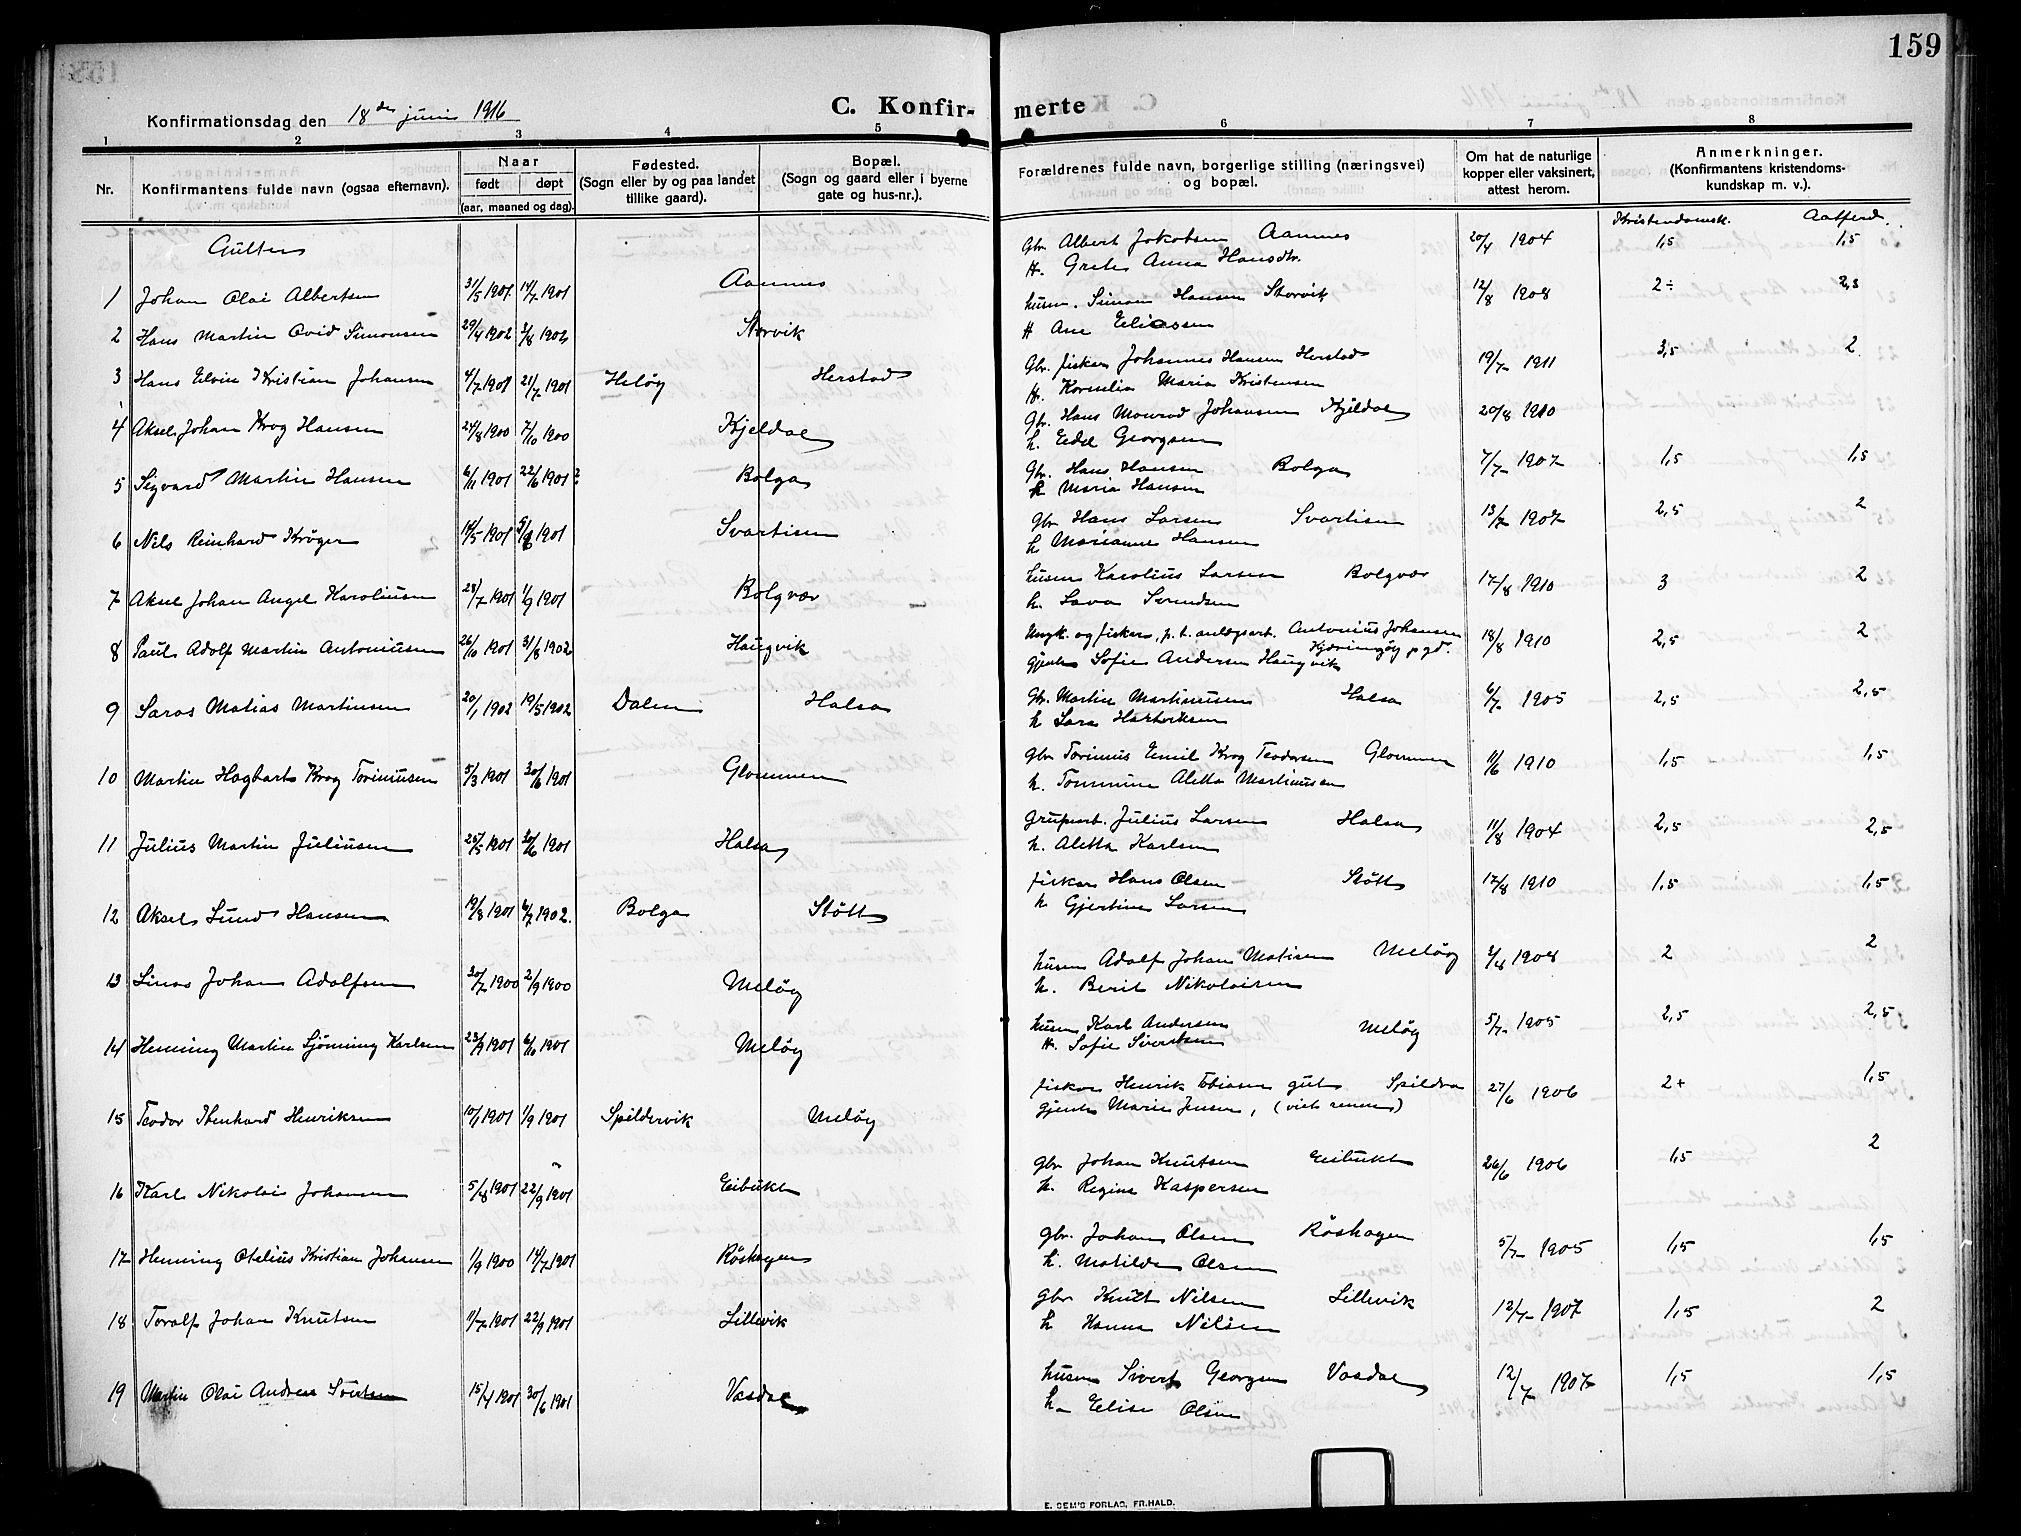 159
Konfirmationsdag den 18de juni 1916
C. Konfir-merte
1 2 3 4 5 6 7 8
Nr. Konfirmantens fulde navn (ogsaa efternavn). Naar født døpt (aar, maaned og dag). Fødested. (Sogn eller by og paa landet tillike gaard). Bopæl. (Sogn og gaard eller i byerne gate og hus-nr.). Forældrenes fulde navn, borgerlige stilling (næringsvei) og bopæl. Om hat de naturlige kopper eller vaksinert, attest herom. Anmerkninger. (Konfirmantens kristendoms-kundskap m. v.).
Kristendomsk. Aatferd.
Gutter
1 Johan Olai Albertsen 31/5 1901 14/7 1901 Aamnes Gbr Albert Jakobsen Aamnes 20/4 1904 1,5 1,5
H. Grete Anna Hansdtr.
2 Hans Martin Ovid Simonsen 29/4 1902 3/8 1902 Storvik husm. Simon Hansen Storvik 12/8 1908 2÷ 2,3
H Ane Eliassen
3 Hans Elvin Kristian Johansen 4/7 1901 21/7 1901 Heløy Herstad Gbr. fisker Johannes Hansen Herstad 19/7 1911 3,5 2
H. Kornelia Maria Kristensen
4 Aksel Johan Krog Hansen 24/8 1900 7/10 1900 Kjeldal Gbr. Hans Monrad Johansen Kjeldal 20/8 1910
h. Edel Georgsen
5 Sigvard Martin Hansen 6/11 1901 22/6 1901? Bolga Gbr. Hans Hansen Bolga 7/7 1907 1,5 1,5
h Maria Hansen
6 Nils Reinhard Krøger 14/5 1901 1901 Svartisen Gbr Hans Larsen Svartisen 13/7 1907 2,5 2
h Marianne Hansen
7 Aksel Johan Angel Karoliusen 28/7 1901 1/9 1901 Bolgvær husm Karolius Larsen Bolgvær 17/8 1910 3 2
h. Lava Svendsen
8 Paul Adolf Martin Antoniusen 26/10 1901 31/8 1902 Haugvik Ungk. og fisker, p. t. anlægsarb. Antonius Johansen Kjerringøy pgd. 18/8 1910 2,5 2
Gjente Sofie Andersen Haugvik
9 Saras Matias Martinsen 20/1 1902 19/5 1902 Dalen Halsa Gbr. Martin Martinusen Halsa 6/7 1905 2,5 2,5
h Sara Hartviksen
10 Martin Hagbart Krog Torinusen 5/3 1901 30/6 1901 Glommen Gbr Torinus Emil Krog Teodorsen Glommen 11/6 1910 1,5 1,5
h. Tommine Aletta Martinusen
11 Julius Martin Juliusen 25/5 1901 30/6 1901 Halsa Grubearb. Julius Larsen Halsa 11/8 1904 2,5 2,5
h. Aletta Karlsen
12 Aksel Lund Hansen 19/8 1901 6/7 1902. Bolga Støtt fisker Hans Olsen Støtt 17/8 1910 1,5 1,5
h Gjertine Larsen
13 Linos Johan Adolfsen 30/7 1900 2/9 1900 Meløy husm Adolf Johan Matisen Meløy 3/8 1908 2 2
h. Berit Nikolaisen
14 Henning Martin Sjønning Karlsen 23/9 1901 6/10 1901 Meløy husm Karl Andersen Meløy 5/7 1905 2,5 2,5
H. Sofie Sivertsen
15 Teodor Ibenhard Henriksen 10/1 1901 1/9 1901 Spildervik Meløy fisker Henrik Tobiasen gut Spildra 27/6 1906 2+ 1,5
Gjente Marie Jensen, (viet senere)
16 Karl Nikolai Johansen 5/8 1901 22/9 1901 Eibukt gbr Johan Knutsen Eibukt 26/6 1906 1,5 2
h. Regine Kaspersen
17 Henning Otelius Kristian Johansen 1/9 1900 14/7 1901 Røshagen gbr. Johan Olsen Røshagen 5/7 1905 1,5 1,5
h. Matilde Olsen
18 Toralf Johan Knutsen 11/7 1901 22/9 1901 Lillevik gbr Knut Nilsen Lillevik 12/7 1907 1,5 2
h Hanna Nilsen
19 Martin Olai Andreas Sivertsen 15/4 1901 30/6 1901 Vasdal husm Sivert Georgsen Vasdal 12/7 1907 1,5 1,5
h Elise Olsen
E. SEM'S FORLAG, FR.HALD.